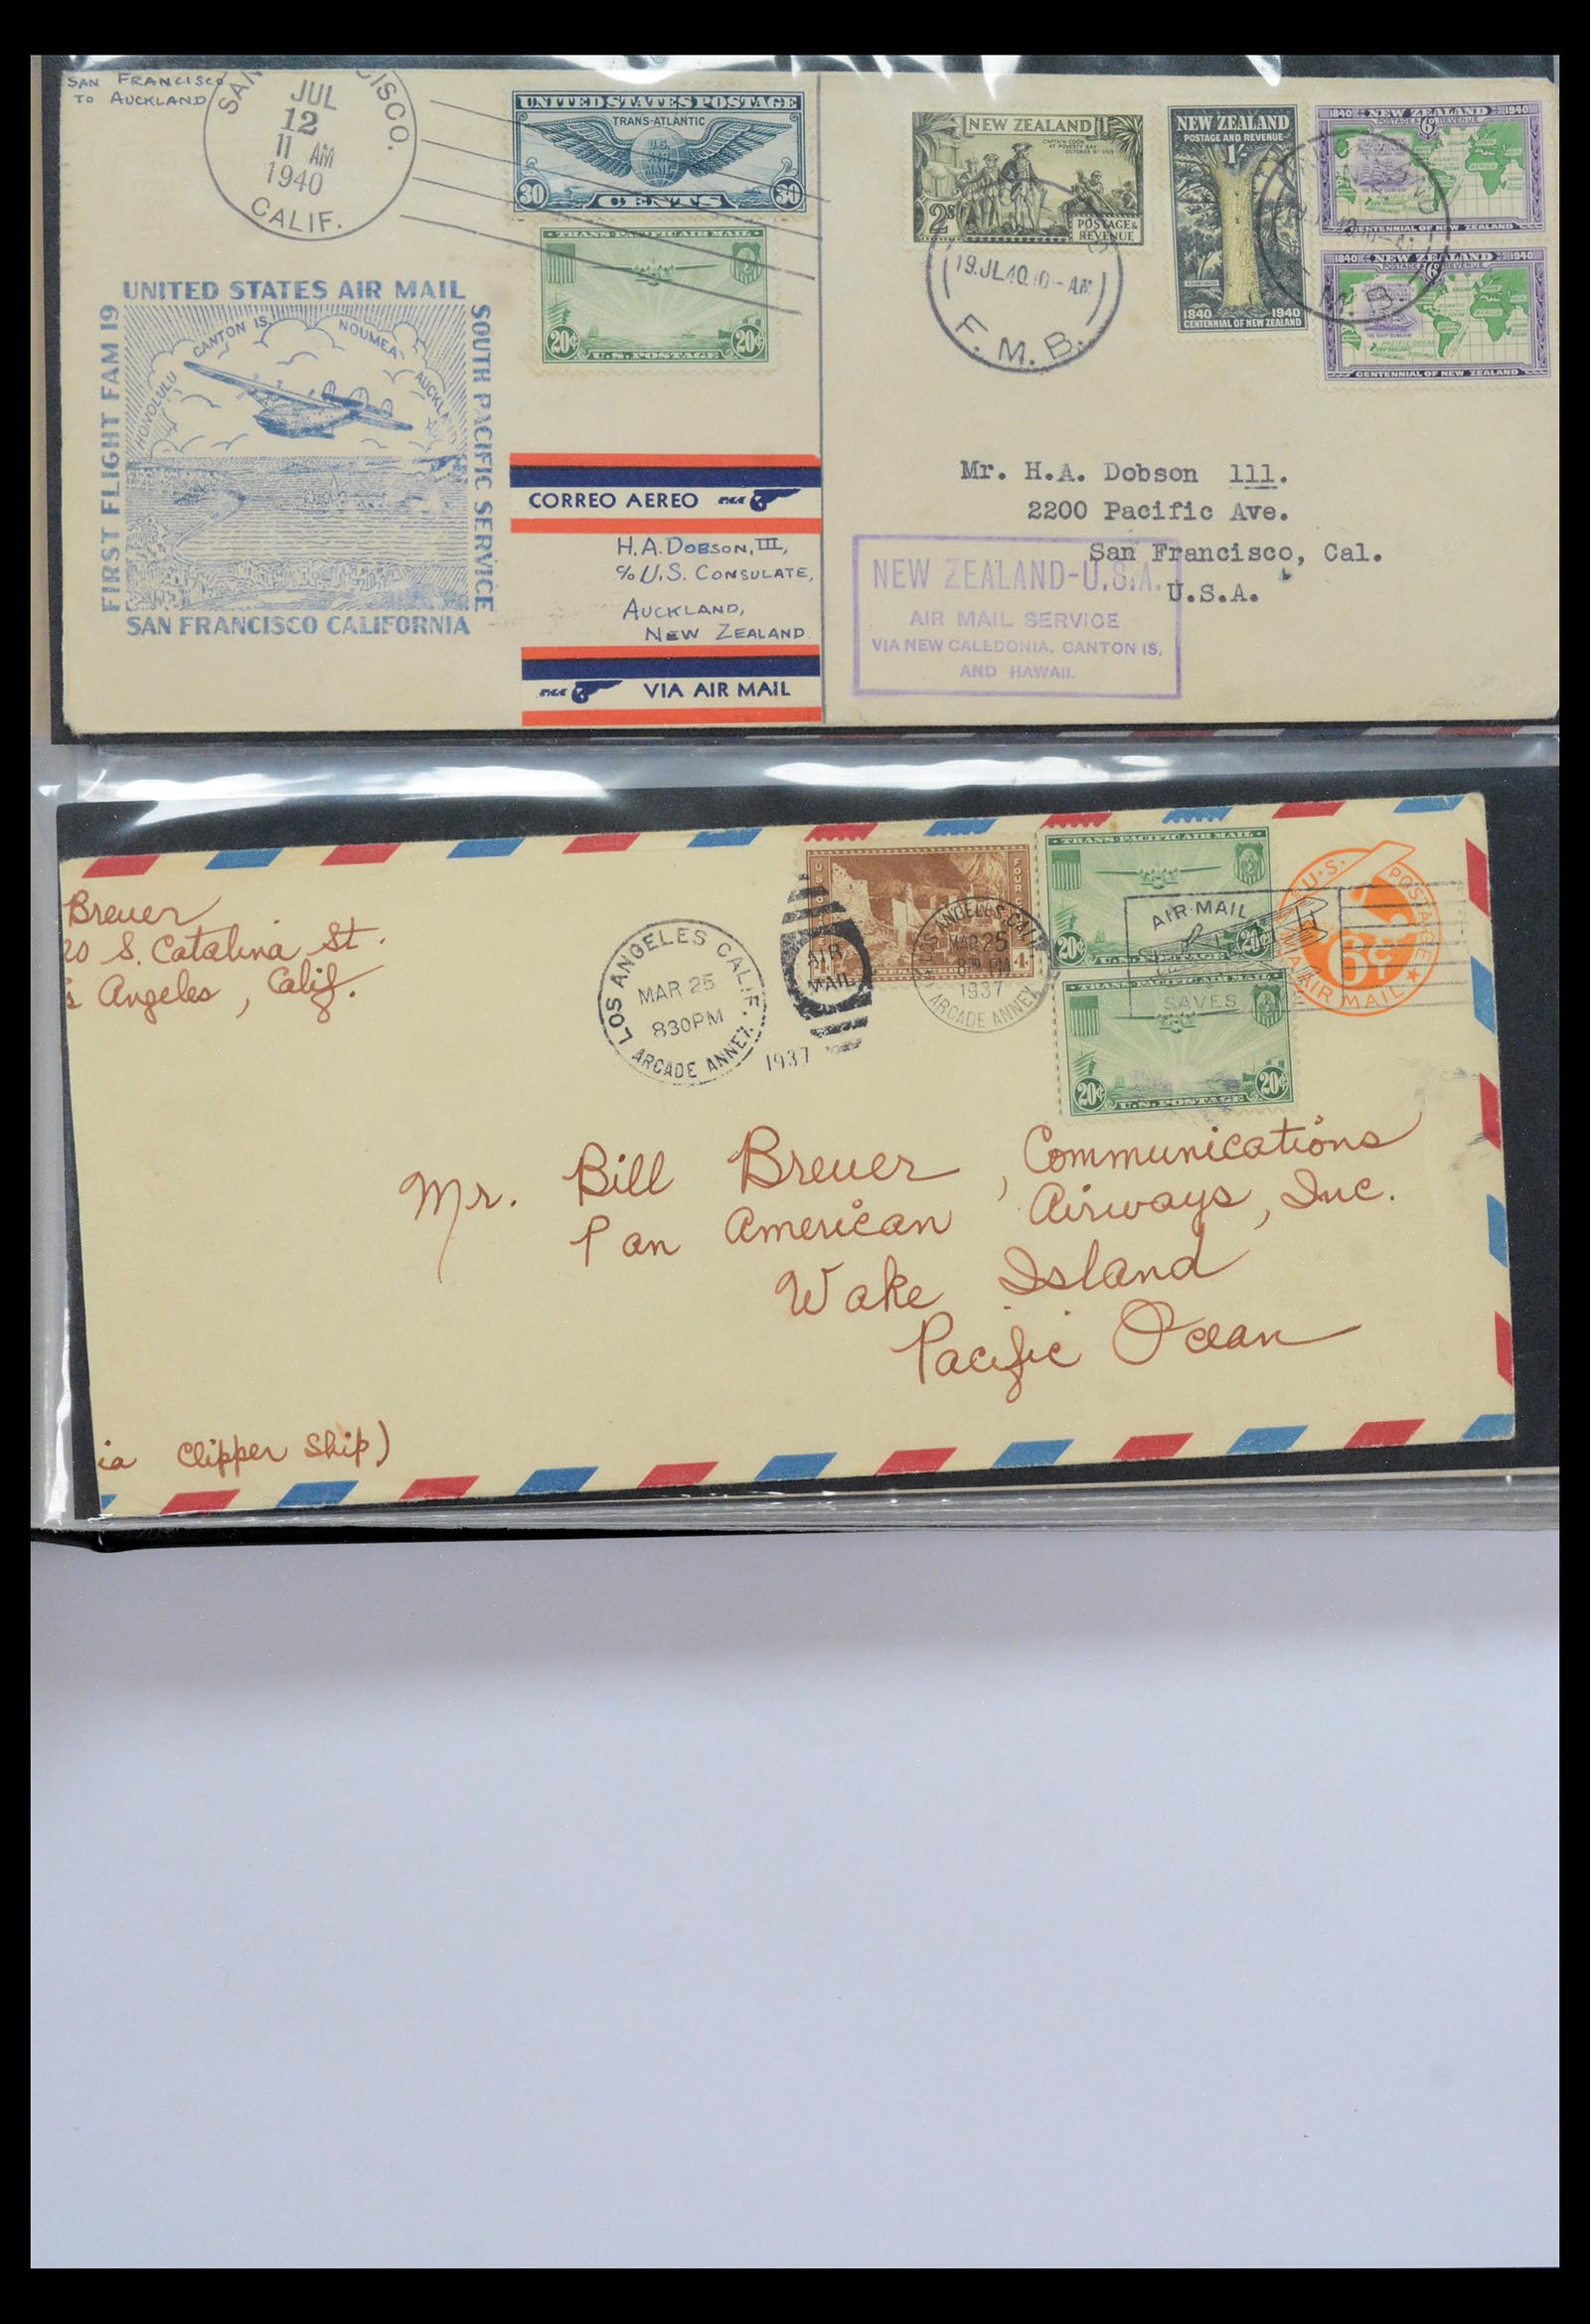 SAN FRANCISCO
TO AUCKLAND
JUL
12
11 AM
1940
CALIF.
UNITED STATES POSTAGE
TRANS-ATLANTIC
U.S.
AIR
MAIL
30 30
CENTS
TRANS-PACIFIC AIR MAIL
20¢ 20¢
U.S. POSTAGE
UNITED STATES AIR MAIL
FIRST FLIGHT FAM 19
SOUTH PACIFIC SERVICE
HONOLULU
CANTON IS.
NOUMEA
SAN FRANCISCO CALIFORNIA
CORREO AEREO
H.A. DOBSON, III,
c/o U.S. CONSULATE,
AUCKLAND,
NEW ZEALAND.
VIA AIR MAIL
NEW ZEALAND
CAPTAIN COOK
AT POVERTY BAY
2s
POSTAGE &
REVENUE
19.JL.40.10-AM
F.M.B.
NEW ZEALAND
POSTAGE AND REVENUE
1/-
1840 1940
CENTENNIAL OF NEW ZEALAND
1840 NEW ZEALAND 1940
POSTAGE 6D REVENUE
CENTENNIAL OF NEW ZEALAND
1840 NEW ZEALAND 1940
POSTAGE 6D REVENUE
CENTENNIAL OF NEW ZEALAND
Mr. H.A. Dobson lll.
2200 Pacific Ave.
San Francisco, Cal.
U.S.A.
NEW ZEALAND-U.S.A.
AIR MAIL SERVICE
VIA NEW CALEDONIA, CANTON IS.
AND HAWAII.
Breuer
20 S. Catalina St.
s Angeles, Calif.
LOS ANGELES CALIF.
MAR 25
830PM
ARCADE ANNEX
1937
AIR
MAIL
LOS ANGELES CALIF.
MAR 25
830 PM
1937
ARCADE ANNEX
TRANS-PACIFIC AIR MAIL
20¢ 20¢
U.S. POSTAGE
TRANS-PACIFIC AIR MAIL
20¢ 20¢
U.S. POSTAGE
AIR MAIL
SAVES
U.S. POSTAGE
6¢
AIR MAIL
Mr. Bill Breuer, Communications
Pan American Airways, Inc.
Wake Island
Pacific Ocean
ia Clipper Ship)